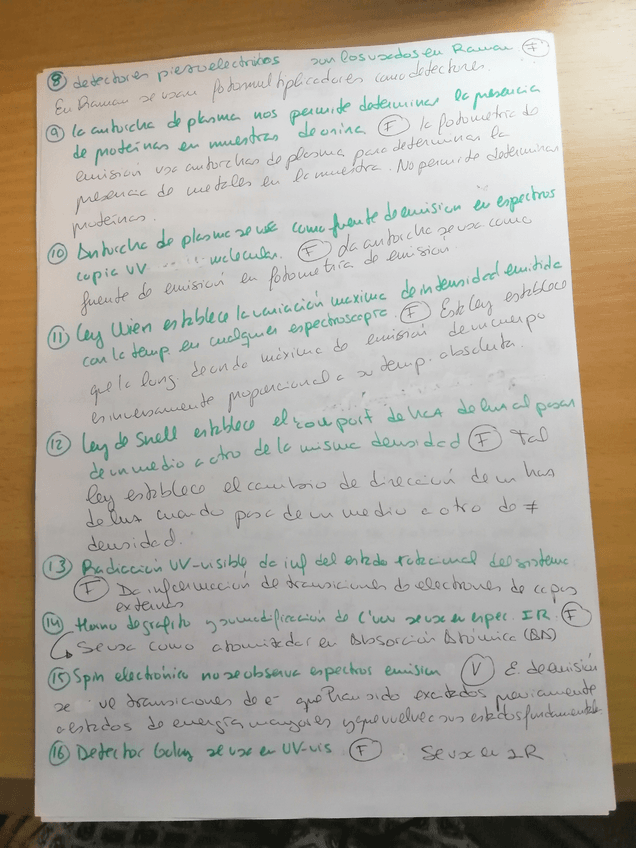 ⑧ detectores piezoelectricos son los usados en Raman Ⓕ
En Raman se usan fotomultiplicadores como detectores.
⑨ la antorcha de plasma nos permite determinar la presencia
de proteínas en muestras de orina Ⓕ la fotometría de
emisión usa antorchas de plasma para determinar la
presencia de metales en la muestra. No permite determinar
proteínas.
⑩ Antorcha de plasma se usa como fuente de emision en espectros
copia UV molecular. Ⓕ La antorcha se usa como
fuente de emisión en fotometría de emisión.
⑪ Ley Wien establece la variación maxima de intensidad emitida
con la temp. en cualquier espectroscopia. Ⓕ Esta ley establece
que la long de onda máxima de emisión de un cuerpo
es inversamente proporcional a su temp. absoluta.
⑫ Ley de Snell establece el comport de haz de luz al pasar
de un medio a otro de la misma densidad Ⓕ Tal
ley establece el cambio de dirección de un haz
de luz cuando pasa de un medio a otro de ≠
densidad.
⑬ Radiación UV-visible da inf del estado rotacional del sistema.
Ⓕ Da información de transiciones de electrones de capas
externas
⑭ Horno de grafito y su modificación de L'vov se usa en espec. IR. Ⓕ
Se usa como atomizador en Absorción Atómica (AA)
⑮ Spin electrónico no se observa espectros emision Ⓥ E. de emisión
se ve transiciones de e- que han sido excitados previamente
a estados de energía mayores y que vuelve a sus estados fundamentales
⑯ Detector Golay se usa en UV-vis. Ⓕ Se usa en IR